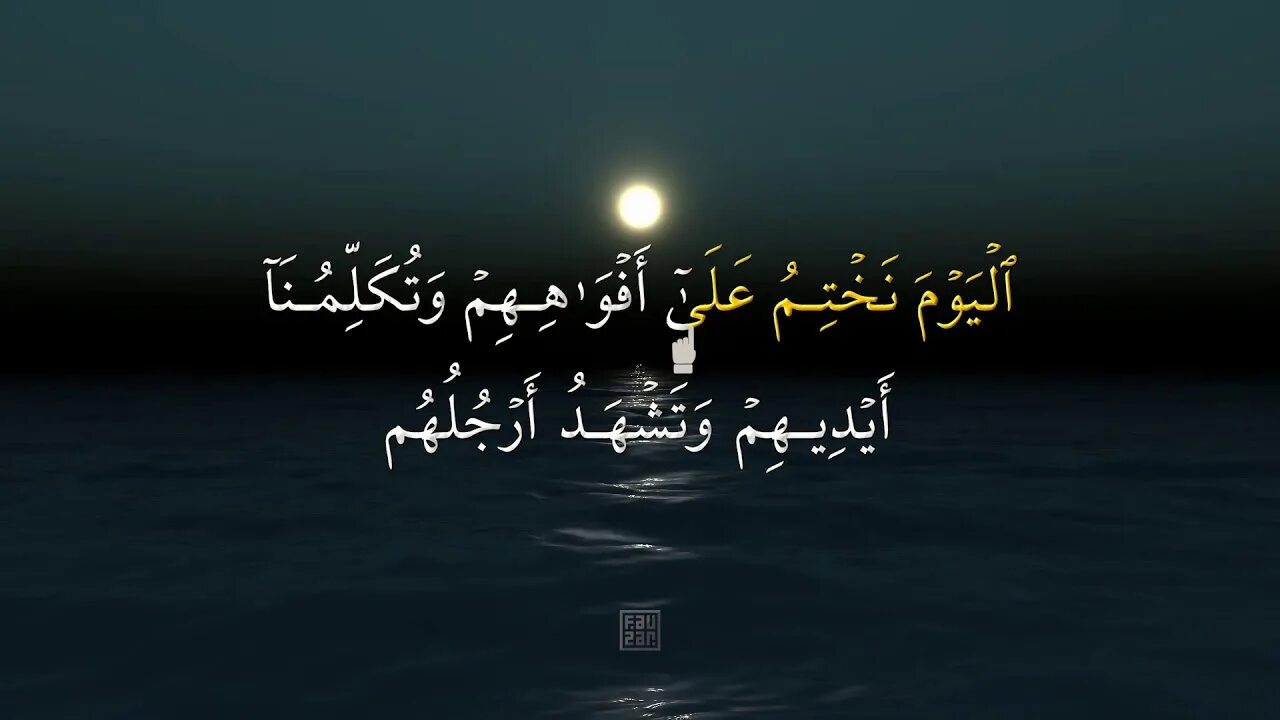 ٱلْيَوْمَ نَخْتِمُ عَلَىٰٓ أَفْوَٰهِهِمْ وَتُكَلِّمُنَآ
أَيْدِيهِمْ وَتَشْهَدُ أَرْجُلُهُم
Fau
zan